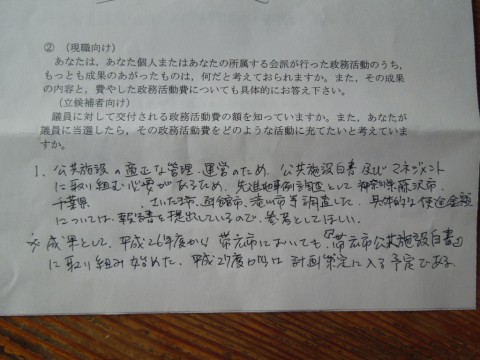 ② （現職向け）
あなたは，あなた個人またはあなたの所属する会派が行った政務活動のうち，
もっとも成果のあがったものは，何だと考えておられますか。また，その成果
の内容と，費やした政務活動費についても具体的にお答え下さい。
（立候補者向け）
議員に対して交付される政務活動費の額を知っていますか。また，あなたが
議員に当選したら，その政務活動費をどのような活動に充てたいと考えていま
すか。
1. 公共施設の適正な管理・運営のため、公共施設白書及びマネジメント
に取り組む必要があるため、先進地事例調査として神奈川県藤沢市、
千葉県 さいたま市、函館市、滝川市等調査した。具体的な使途金額
については、報告書を提出しているので、参考としてほしい。
※成果として、平成26年度から帯広市においても、「帯広市公共施設白書」
に取り組み始めた。平成27年度以降は計画策定に入る予定である。